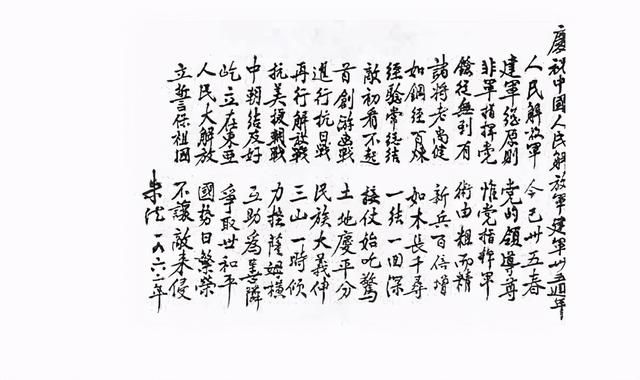 慶祝中國人民解放軍建軍卅五週年
人民解放軍 今已卅五春
建軍總原則 黨的領導尊
非軍指揮黨 惟黨指揮軍
鎗從無到有 術由粗而精
諸將老尚健 新兵百倍增
如鋼經百煉 如木長千尋
經驗常總結 一結一回深
敵初看不起 接仗始吃驚
首創游擊戰 土地慶平分
進行抗日戰 民族大義伸
再行解放戰 三山一時傾
抗美援朝戰 力挫薩姆橫
中朝結友好 互助為善鄰
屹立在東亞 爭取世和平
人民大解放 國勢日繁榮
立誓保祖國 不讓敵來侵
朱德 一九六二年